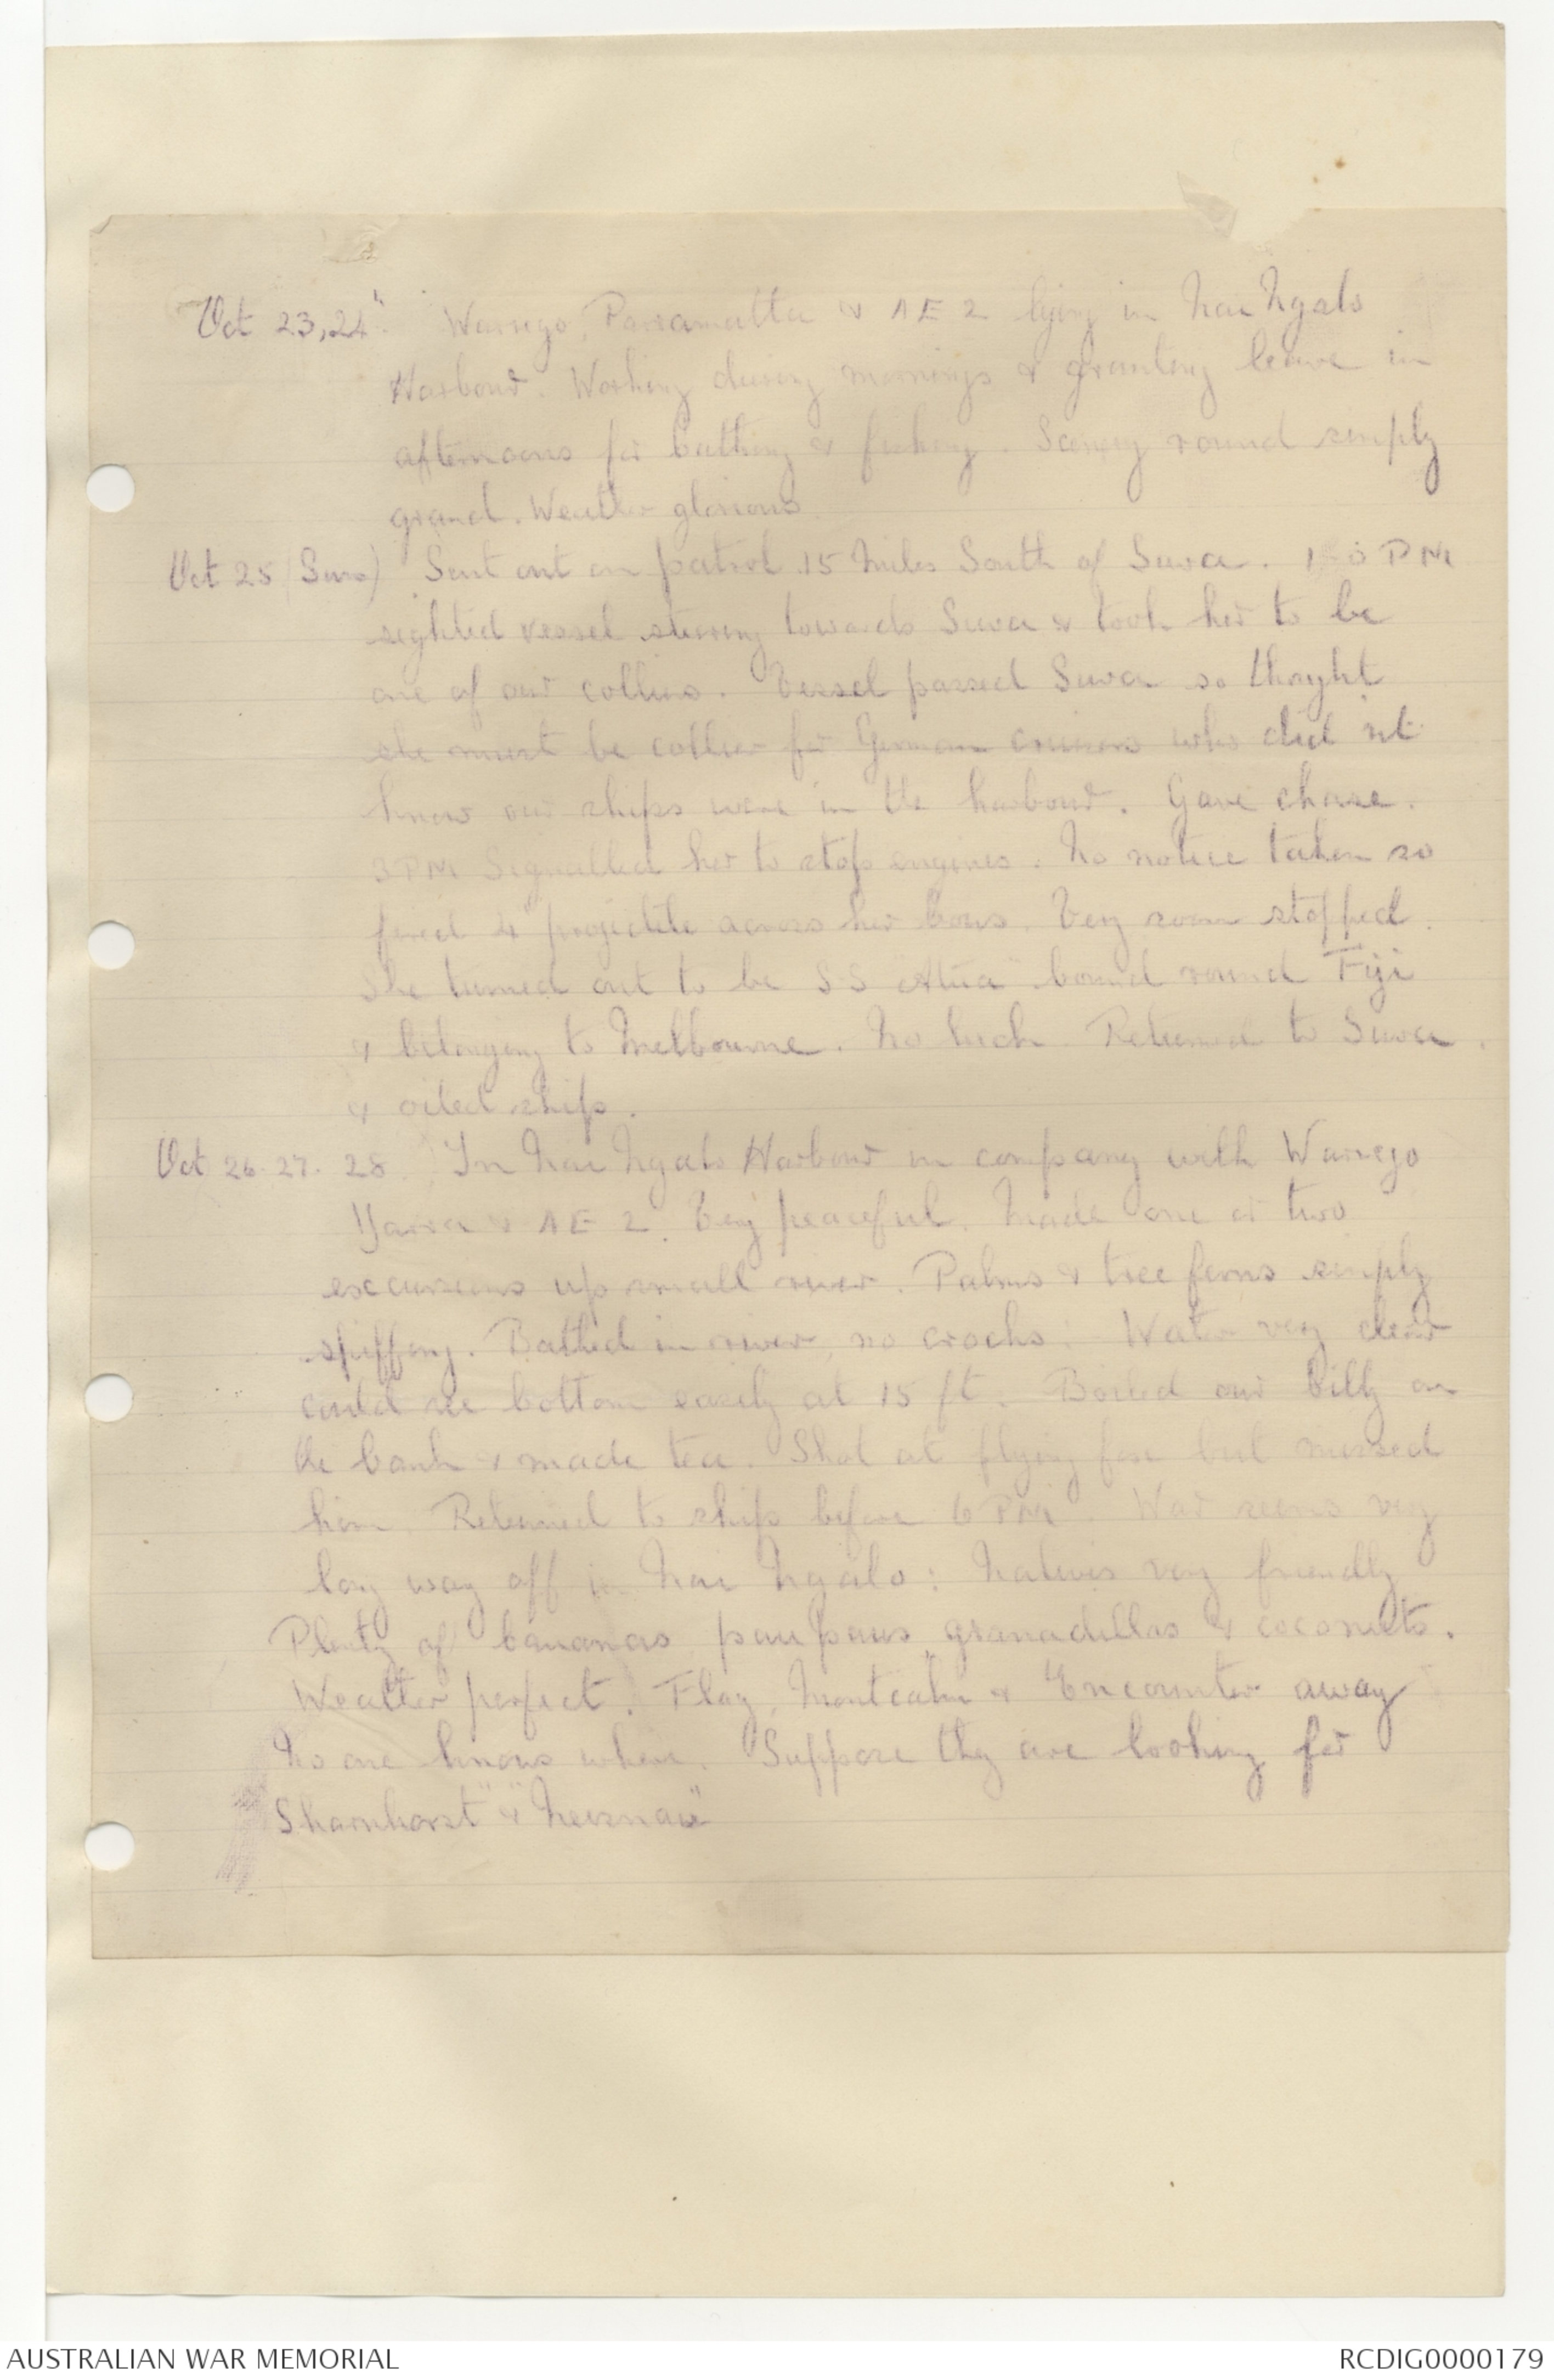 Oct 23, 24" Warrego, Parramatta & AE 2 lying in Nai Ngalo
Harbour. Working during mornings & granting leave in
afternoons for bathing & fishing. Scenery round simply
grand. Weather glorious
Oct 25 (Sun) Sent out on patrol 15 Miles South of Suva. PM
sighted vessel steering towards Suva & took her to be
one of our colliers. Vessel passed Suva so thought
she must be collier for German cruisers who did nt
know our ships were in the harbour. Gave chase.
3 PM Signalled her to stop engines. No notice taken so
fired 4" projectile across her bows. Very soon stopped.
She turned out to be S.S Atua bound round Fiji
& belonging to Melbourne. No luck. Returned to Suva.
& oiled ship.
Oct 26. 27. 28. In Nai Ngalo Harbour in company with Warrego
Yarra & AE 2. Very peaceful. Made one or two
excursions up small river. Palms & tree ferns simply
spiffing. Bathed in river, no crocks. Water very clear
could see bottom easily at 15 ft. Boiled our billy on
the bank & made tea. Shot at flying fox but missed
him. Returned to ship before 6 PM. War seems very
long way off in Nai Ngalo: Natives very friendly
Plenty of bananas paupaus granadillas & coconuts.
Weather perfect. Flag, Montcalm & Encounter away
No one knows where. Suppose they are looking for
Sharnhorst" & "Neisnau"
AUSTRALIAN WAR MEMORIAL
RCDIG0000179